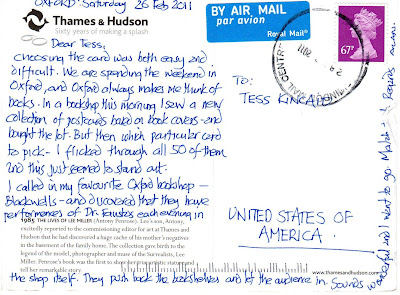 OXFORD: Saturday 26 Feb 2011
Thames & Hudson
Sixty years of making a splash
Dear Tess,
Choosing the card was both easy and
difficult. We are spending the weekend in
Oxford, and Oxford always makes me think of
books. In a bookshop this morning I saw a new
collection of postcards based on book covers - and
bought the lot. But then which particular card
to pick - I flicked through all 50 of them
and this just seemed to stand out.
I called in my favourite Oxford bookshop -
Blackwells - and discovered that they have
performances of Dr. Faustus each evening in
the shop itself. They push back the bookshelves and let the audience in. Sounds
wonderful and I want to go. Match - &
1985 THE LIVES OF LEE MILLER (Antony Penrose). Lee's son, Antony,
excitedly reported to the commissioning editor for art at Thames and
Hudson that he had discovered a huge cache of his mother's negatives
in the basement of the family home. The collection gave birth to the
legend of the model, photographer and muse of the Surrealists, Lee
Miller. Penrose's book was the first to
tell her remarkable story.
BY AIR MAIL
par avion
Royal Mail
67P
MAIL CENTRE
TO:
TESS KINCAID
UNITED STATES OF
AMERICA.
www.thamesandhudson.com